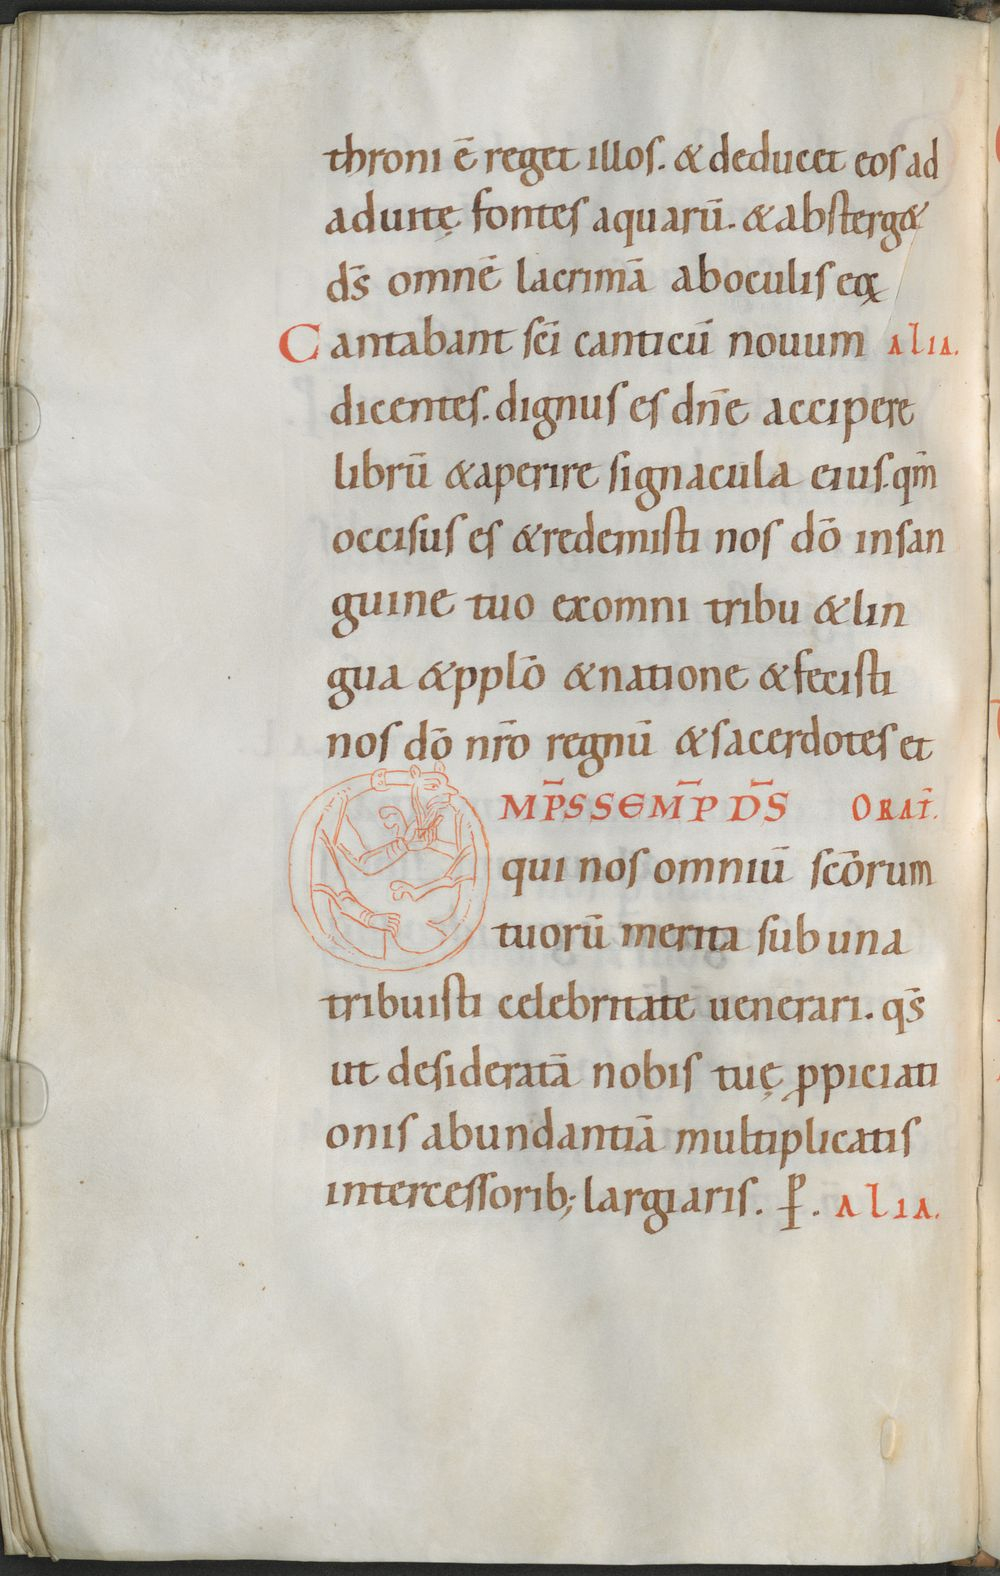 throni ē reget illos. & deducet eos ad
ad uitę fontes aquarū. & absterg&
d̄s omnē lacrimā ab oculis eoꝝ
Cantabant sc̄i canticū nouum alia.
dicentes. dignus es dn̄e accipere
librū & aperire signacula eius. qm̄
occisus es & redemisti nos dō in san
guine tuo ex omni tribu & lin
gua & pplō & natione & fecisti
nos dō nr̄o regnū & sacerdotes et
OMP̄S SEMP̄ D̄S ORAT̄.
qui nos omniū scōrum
tuorū merita sub una
tribuisti celebritate uenerari. qs̄
ut desideratā nobis tuę ꝓpiciati
onis abundantiā multiplicatis
intercessorib; largiaris. P̱. alia.